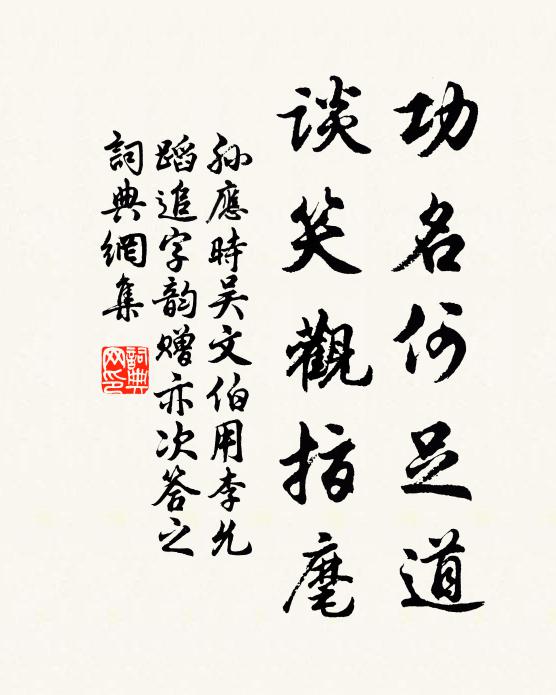 功名何足道
谈笑觀指麾
孙應時吴文伯用李允
蹈追字韵赠亦次答之
詞典網集
詞典网印